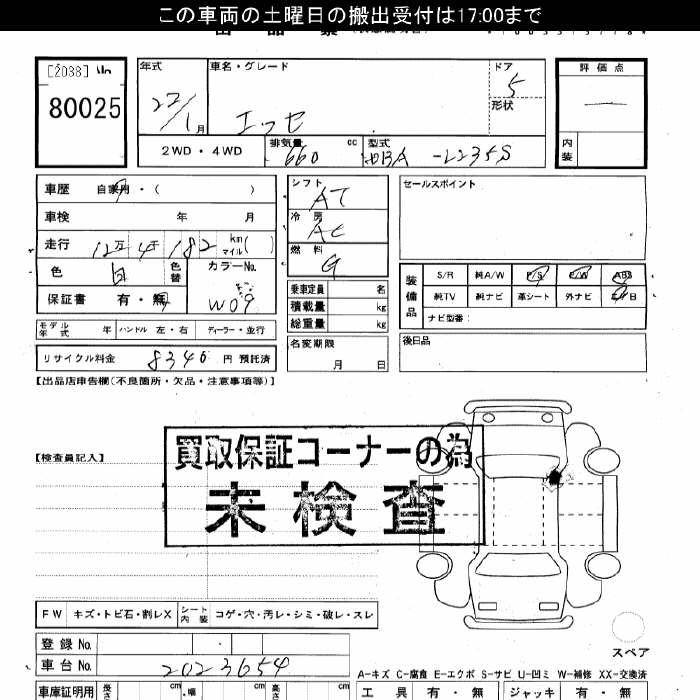 この車両の土曜日の搬出受付は17:00まで
[2038]
80025
年式 車名・グレード ドア 評価点
22/1月 エッセ 5
形状
2WD・4WD 排気量 660 cc 型式 DBA-L235S 内装
車歴 自家用・( )
車検 年 月
走行 12万4千182 km マイル( )
色 白 色替 カラーNo. W09
保証書 有・無
モデル年式 年 ハンドル 左・右 ディーラー・並行
リサイクル料金 8340 円 預託済
シフト AT
冷房 AC
燃料 G
乗車定員 名
積載量 kg
総重量 kg
名変期限 月 日
セールスポイント
装備品 S/R 純A/W P/S P/W ABS
純TV 純ナビ 革シート 外ナビ エアB
ナビ型番:
後日品
【出品店申告欄(不良箇所・欠品・注意事項等)】
【検査員記入】
買取保証コーナーの為
未検査
FW キズ・トビ石・割レX シート内装 コゲ・穴・汚レ・シミ・破レ・スレ
登録No.
車台No. 2023654
スペア
A-キズ C-腐食 E-エクボ S-サビ U-凹ミ W-補修 XX-交換済
車庫証明用 長さ cm 幅 cm 高さ cm 工具 有・無 ジャッキ 有・無